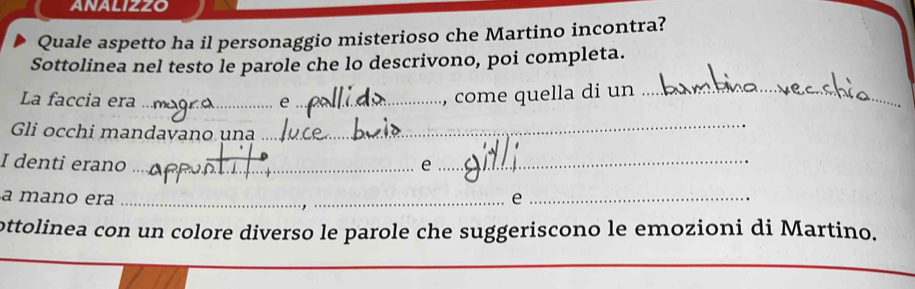 ANALIZZO
Quale aspetto ha il personaggio misterioso che Martino incontra?
Sottolinea nel testo le parole che lo descrivono, poi completa.
La faccia era magra e pallida, come quella di un bambino vecchio.
Gli occhi mandavano una luce buio.
I denti erano appuntiti e gilli.
a mano era , e .
ottolinea con un colore diverso le parole che suggeriscono le emozioni di Martino.